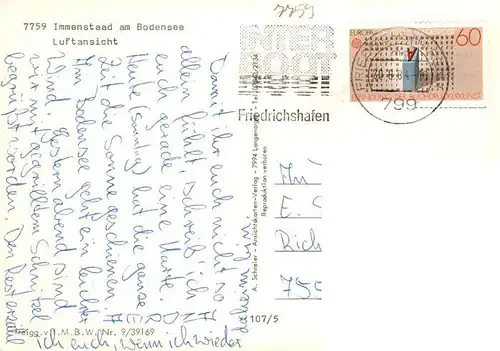 7759
7759 Immenstaad am Bodensee
Luftansicht
INTER
BOOT
Friedrichshafen
EUROPA
60
ERFINDUNG DER BUCHDRUCKERKUNST
799
Damit ihr euch nicht so
allein fühlt, schreib' ich
euch gerade eine Karte.
Heute (Sonntag) hat die ganze
Zeit die Sonne geschienen.
Am Bodensee geht ein leichter
Wind. Gestern abend sind
wir mit gegrilltem Schnitzel
begrüßt worden. Den Rest erzähl
ich euch, wenn ich wieder
daheim bin.
A. Schreier - Ansichtskarten-Verlag - 7994 Langenargen - Tel.
Reproduktion verboten
An
E.
107/5
freigg. v. I. M. B. W. Nr. 9/39169